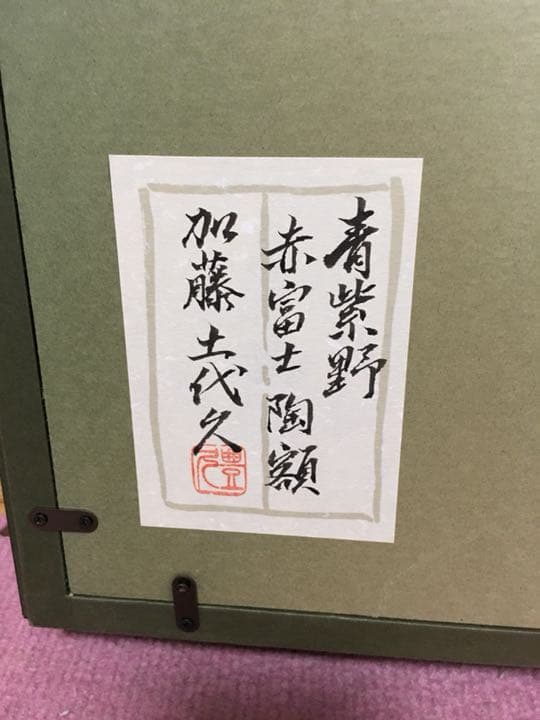 青紫野
赤富士 陶額
加藤土代久